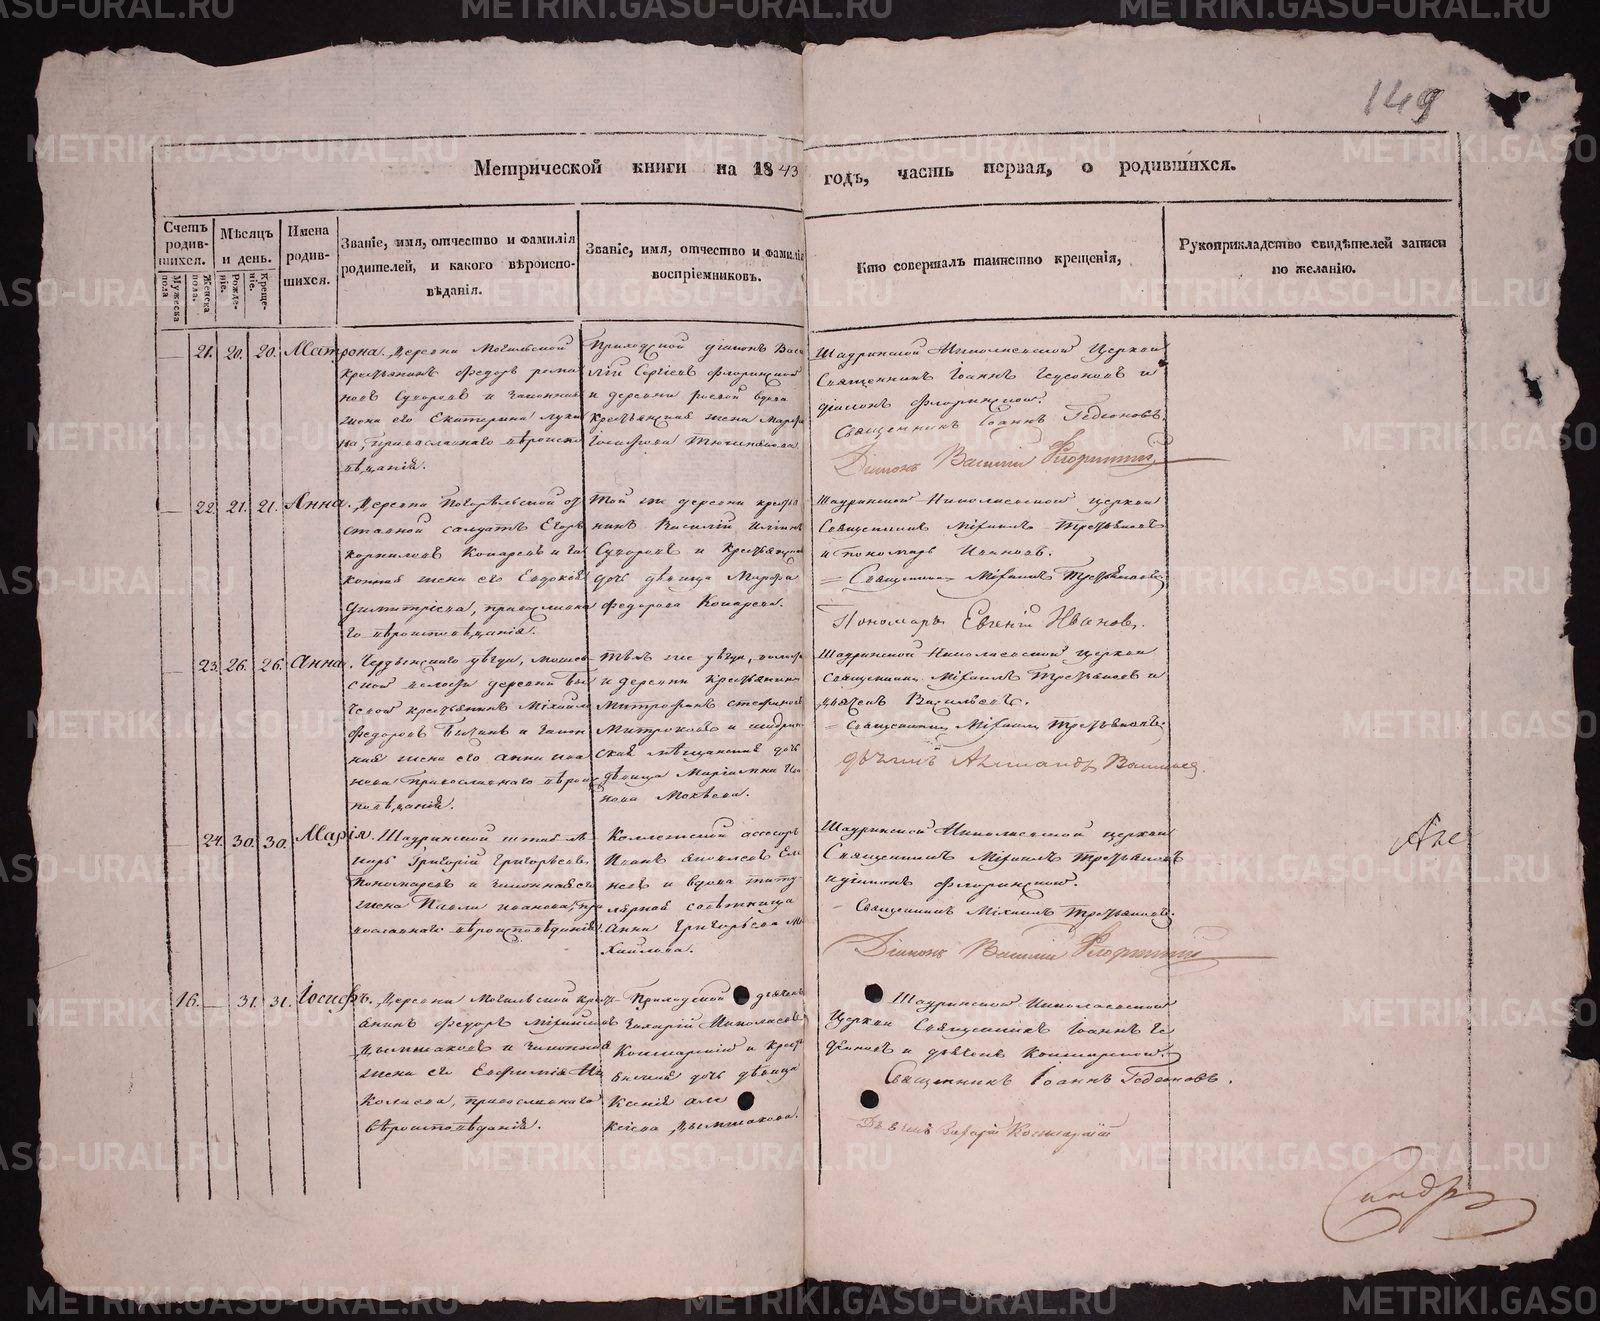 149
Метрической книги на 1843 годъ, часть первая, о родившихся.
Счетъ родив-шихся.
Мужеска пола
Женска пола.
Мѣсяцъ и день.
Рожде-ніе.
Креще-ніе.
Имена родив-шихся.
Званіе, имя, отчество и фамилія
родителей, и какого вѣроиспо-
вѣданія.
Званіе, имя, отчество и фамилія
воспріемниковъ.
Кто совершалъ таинство крещенія,
Рукоприкладство свидѣтелей записи
по желанію.
21. 20. 20. Матрона.
Деревни Могильской
крестьянинъ Федоръ рома
новъ Сухоровъ и законная
жена его Екатерина
православнаго вѣроиспо
вѣданія.
Приходской діаконъ Васи
лій Сергіевъ Флоринской
и деревни вдова
крестьянская жена Марфа
Шадринской Николаевской Церкви
Священникъ Іоаннъ Гедеоновъ и
діаконъ Флоринской.
Священникъ Іоаннъ Гедеоновъ.
Діаконъ Василій Флоринский
22. 21. 21. Анна.
Деревни Погорѣльской от
ставной салдатъ Егоръ
Корниловъ Копаревъ и за
конная жена его Евдокія
Димитріева, православна
го вѣроисповѣданія.
Той же деревни крестья
нинъ Василій
Сухоровъ и крестьянская
дочь дѣвица Марфа
Федорова Копарева.
Шадринской Николаевской церкви
Священникъ Михаилъ Третьяковъ
и пономарь Ивановъ.
Священникъ Михаилъ Третьяковъ
Пономарь Евгеній Ивановъ.
23. 26. 26. Анна.
Чердынскаго уѣзда,
ской волости деревни
крестьянинъ Михаилъ
Федоровъ и закон
ная жена его Анна Ива
нова православнаго вѣроис
повѣданія.
Тѣхъ же уѣзда, волости
и деревни крестьянинъ
Митрофанъ Стефановъ
Митраковъ и шадрин
ская мѣщанская дочь
дѣвица Маріамна Ива
нова Мокѣева.
Шадринской Николаевской Церкви
Священникъ Михаилъ Третьяковъ и
дьячекъ Васильевъ.
Священникъ Михаилъ Третьяковъ
дьячекъ Александръ Васильевъ
24. 30. 30. Марія.
Шадринской штабъ лѣ
карь Григорій Григорьевъ
Пономаревъ и законная его
жена Павла Иванова, пра
вославнаго вѣроисповѣданія.
Коллежской ассесоръ
Иванъ Яковлевъ
и вдова титу
лярная совѣтница
Анна Григорьева Ми
хайлова.
Шадринской Николаевской церкви
Священникъ Михаилъ Третьяковъ
и діаконъ Флоринской.
Священникъ Михаилъ Третьяковъ
Діаконъ Василій Флоринский
16. 31. 31. Іосифъ.
Деревни Могильской кресть
янинъ Федоръ Михайловъ
Дымшаковъ и законная
жена его Евфимія Ни
колаева, православнаго
вѣроисповѣданія.
Приходской дьячекъ
Захарій Николаевъ
Кошмарскій и кресть
янская дочь дѣвица
Ксенія Але
ксіева Дымшакова.
Шадринской Николаевской
Церкви Священникъ Іоаннъ Ге
деоновъ и дьячекъ Кошмарской.
Священникъ Іоаннъ Гедеоновъ.
Дьячекъ Захарій Кошмарскій
Але
ксандръ
METRIKI.GASO-URAL.RU